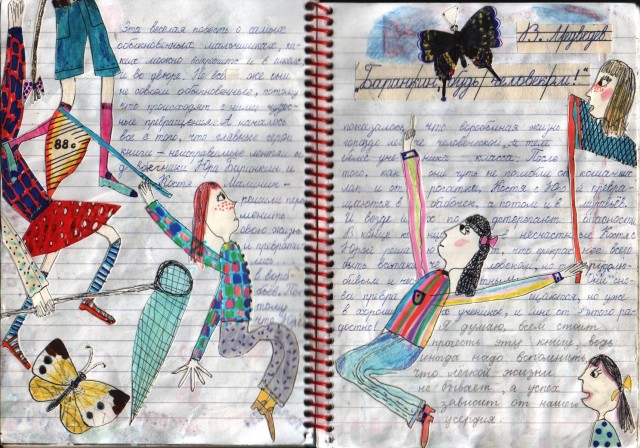 Это веселая повесть о самых
обыкновенных мальчишках, ка-
ких можно встретить и в школе
и во дворе. Но всё же они
не совсем обыкновенные, потому
что происходят с ними чудес-
ные превращения. А началось
все с того, что главные герои
книги – неисправимые лентяи
Юра Баранкин и
Костя Малинин –
решили пере
менить
свою жизнь
и преврати
лись
в воро-
бьёв. По-
тому
что
88с
В. Медведев
"Баранкин, будь человеком!"
показалось, что воробьиная жизнь
гораздо легче человеческой, а тем
более ученика класса. После
того, как они чуть не погибли от кошачьих
лап и от рогатки, Костя с Юрой превра-
щаются в бабочек, а потом и в муравьев.
И везде их подстерегают опасности
В конце концов, несчастные Костя с
Юрой решают, что прекраснее всего
быть человеком, но
превращаются, но уже
в хороших учеников, и мне от этого ра-
достно! Я думаю, всем стоит
прочесть эту книгу, ведь
иногда надо вспомнить,
что легкой жизни
не бывает, а успех
зависит от нашего
усердия.